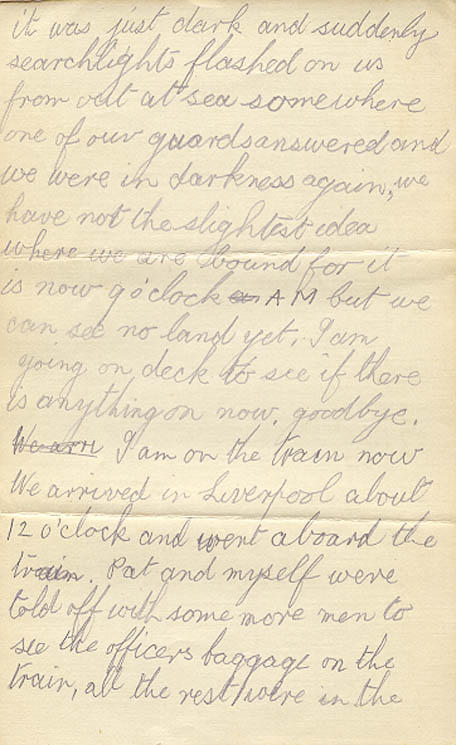 it was just dark and suddenly
searchlights flashed on us
from out at sea somewhere
one of our guards answered and
we were in darkness again, we
have not the slightest idea
where we are bound for it
is now 9 o'clock AM but we
can see no land yet. I am
going on deck to see if there
is anything on now. goodbye.
We arri I am on the train now
We arrived in Liverpool about
12 o'clock and went aboard the
train. Pat and myself were
told off with some more men to
see the officers baggage on the
train, all the rest were in the